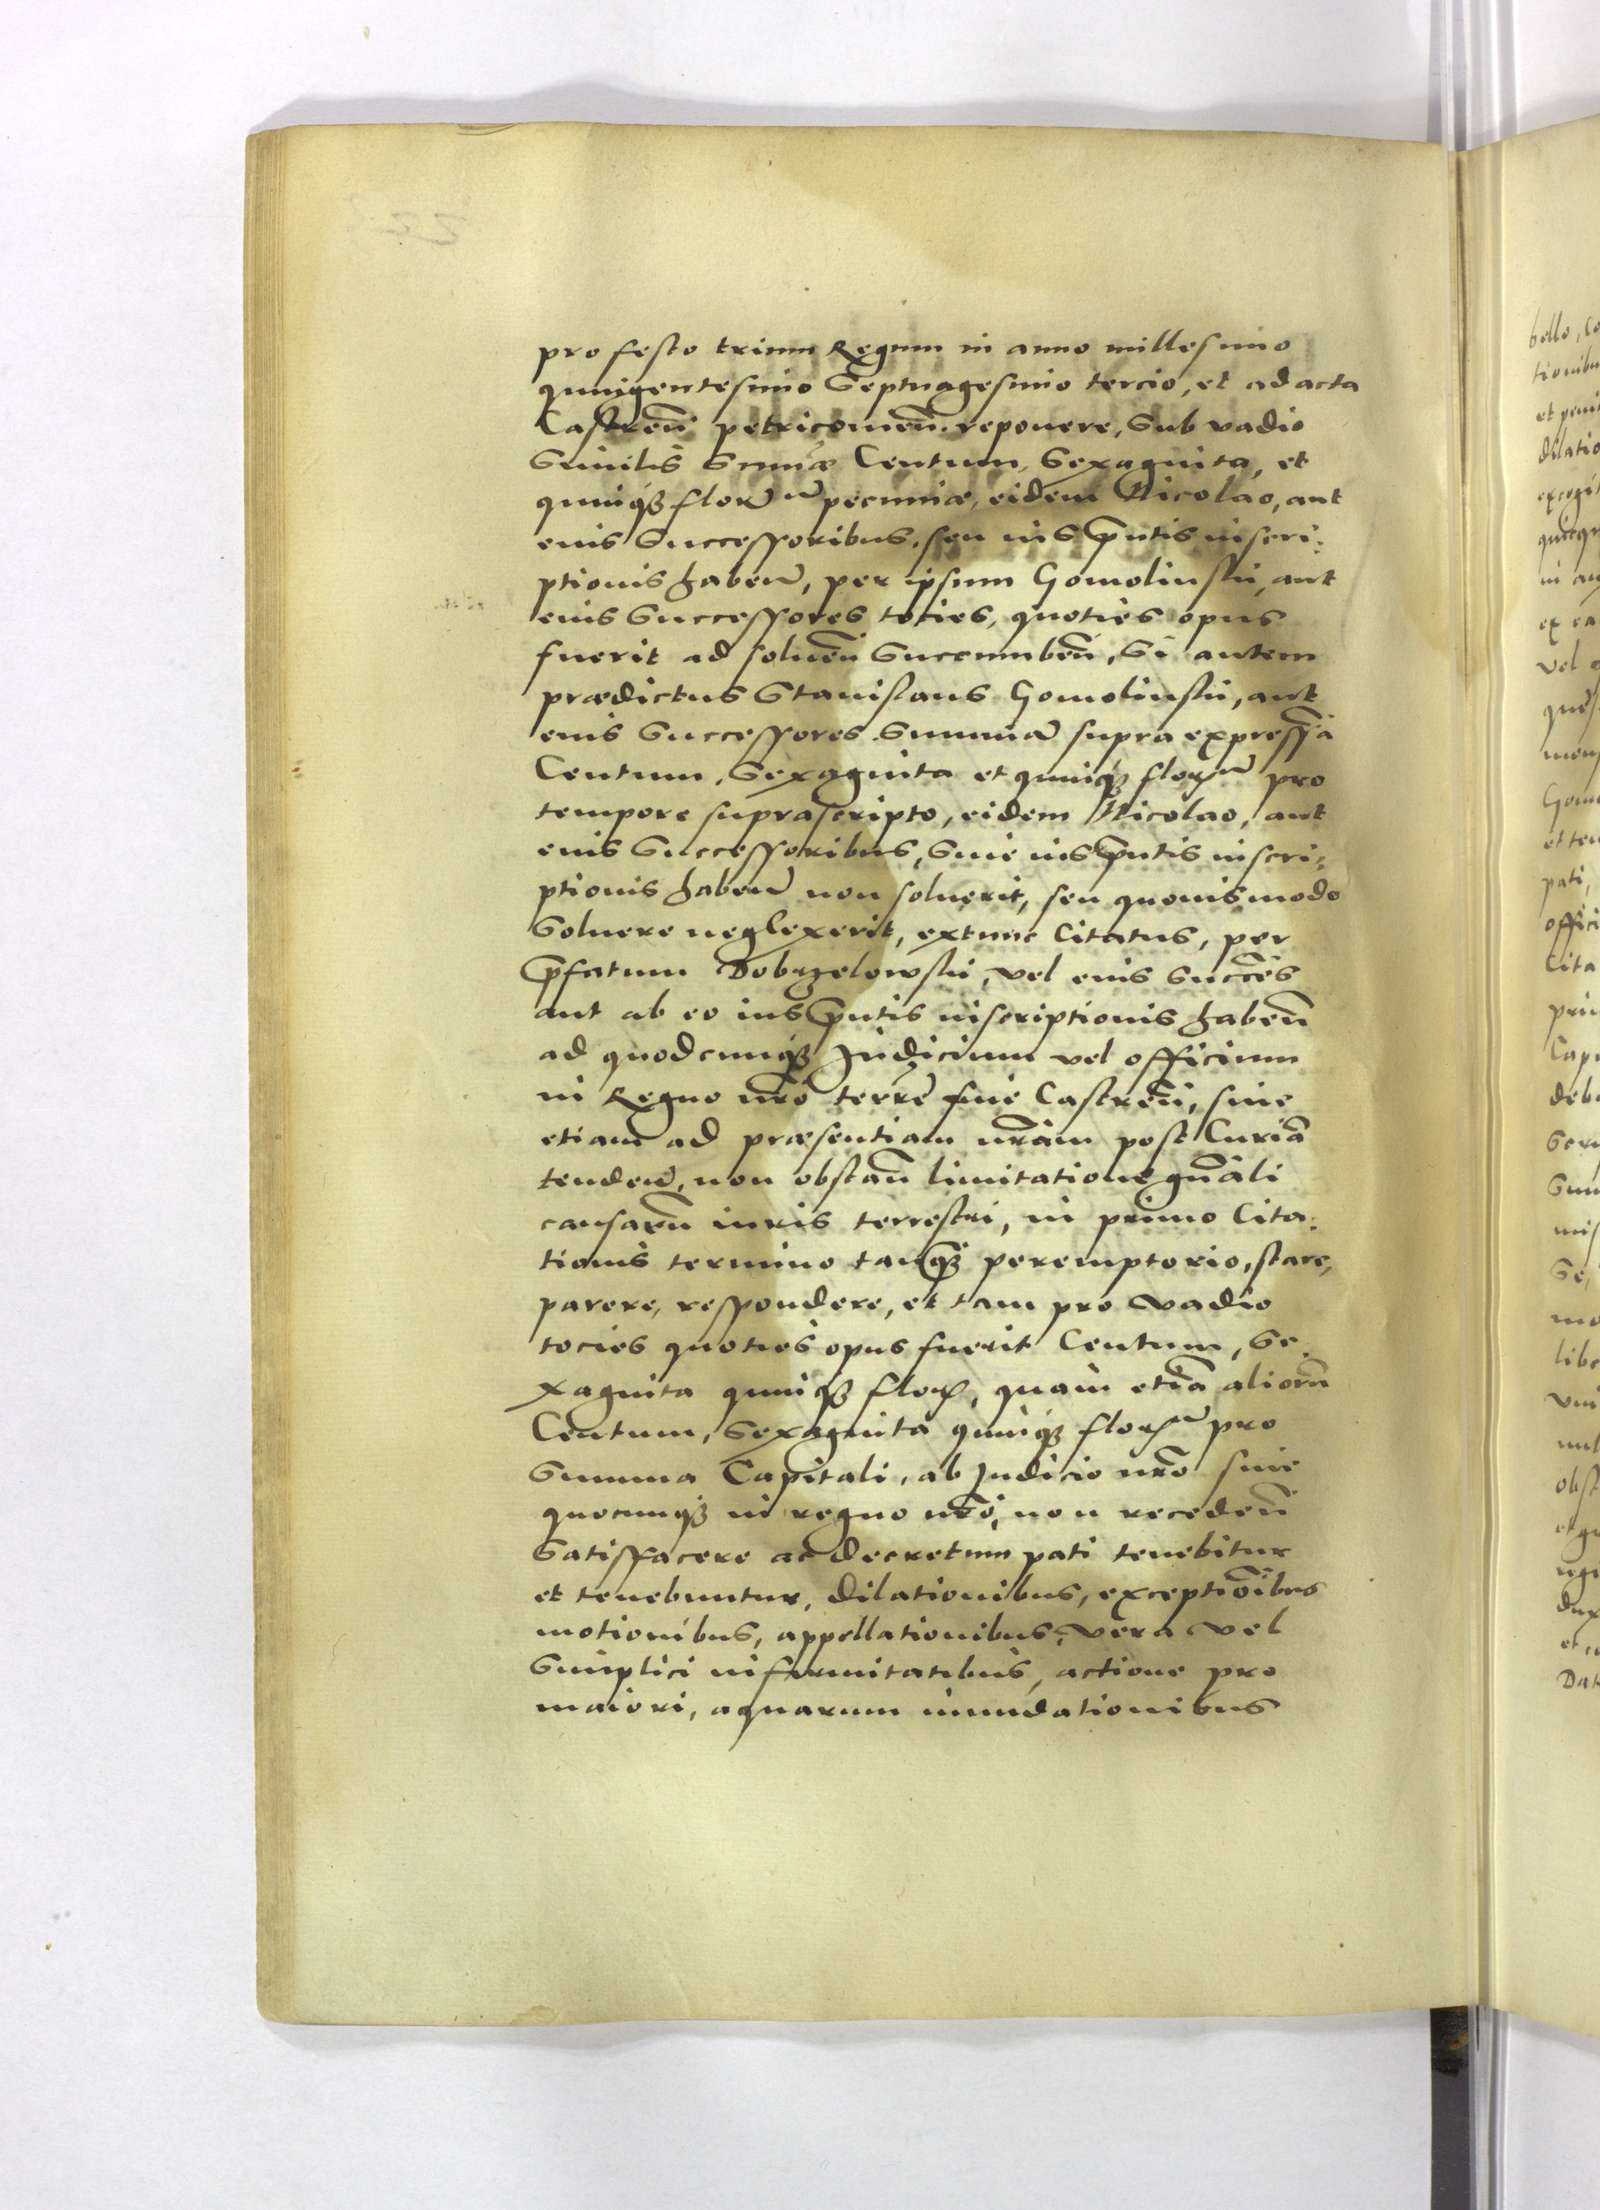 pro festo trium Regum in anno millesimo
quingentesimo Septuagesimo tercio, et ad acta
Castren̄ petricouien̄ reponere, Sub vadio
Similis Summæ Centum, Sexaginta, et
quinq₃ floren̄ pecuniæ, eidem Nicolao, aut
eius Successoribus, seu ius p̄ntis inscri:
ptionis haben̄, per ipsum Gomolinski, aut
eius Successores toties, quoties opus
fuerit ad soluen̄ Succumben̄, Si autem
prædictus Stanislaus Gomolinski, aut
eius Successores Summā supra expressā
Centum, Sexaginta et quinq₃ floren̄ pro
tempore suprascripto, eidem Nicolao, aut
eius Successoribus, Siue ius p̄ntis inscri:
ptionis haben̄ non soluerit, seu quouismodo
Soluere neglexerit, extunc Citatus, per
p̄fatum Dobrzelowski, vel eius Succēs
aut ab eo ius p̄ntis inscriptionis haben̄
ad quodcunq₃ Judicium vel officium
in Regno nr̄o terrē siue Castren̄, siue
etiam ad præsentiam nr̄am post Curiā
tenden̄, non obstan̄ limitatione gn̄ali
causarū iuris terrestri, in primo Cita:
tionis termino tanq̄₃ peremptorio, stare,
parere, respondere, et tam pro vadio
tocies quoties opus fuerit Centum, Se
xaginta quinq₃ flor, quam etiā aliorū
Centum, Sexaginta quinq₃ floren̄ pro
Summa Capitali, ab Judicio nr̄o siue
quocunq₃ in regno nr̄o, non receden̄
Satisfacere ac decretum pati tenebitur
et tenebuntur, dilationibus, exceptiōibus
motionibus, appellationibus, vera vel
Simplici infirmitatibus, actione pro
maiori, aquarum inundationibus